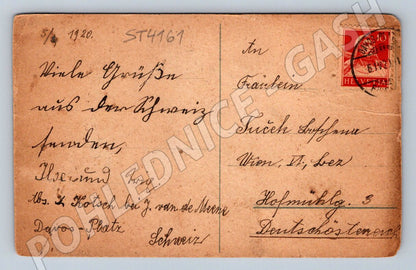 5/1 1920.
ST4161
Viele Grüße
aus der Schweiz
senden,
Ilse und
Abs. J. Kotsch bei J. van de
Davos-Platz
Schweiz
An
Fräulein
Wien, VI, bez
Hofmühlg. 3
Deutschösterreich
HELVETIA
POHLEDNICE - GASH